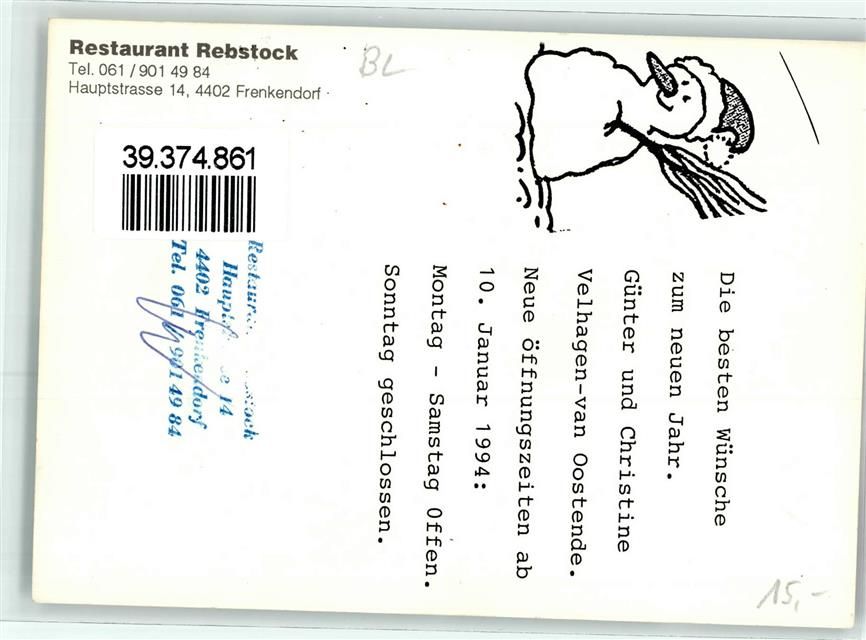 Restaurant Rebstock
Tel. 061 / 901 49 84
Hauptstrasse 14, 4402 Frenkendorf
BL
39.374.861
Die besten Wünsche
zum neuen Jahr.
Günter und Christine
Velhagen-van Oostende.
Neue Öffnungszeiten ab
10. Januar 1994:
Montag - Samstag Offen.
Sonntag geschlossen.
14
4402 Frenkendorf
Tel. 061 / 901 49 84
15,-